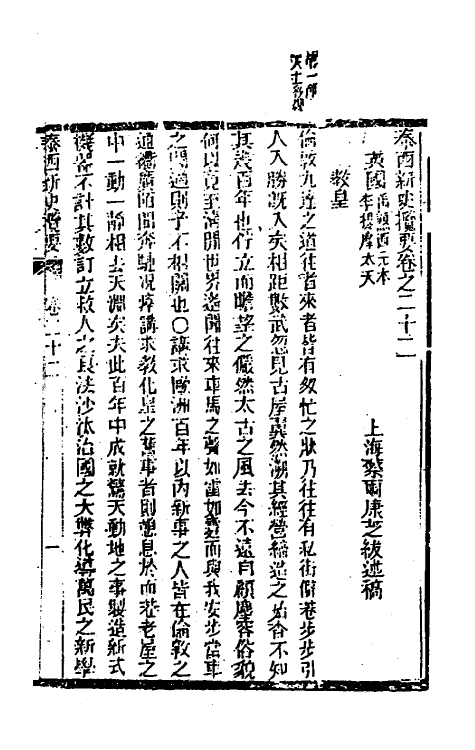 泰西新史攬要卷之二十二
英國馬懇西元本
李提摩太天
上海蔡爾康芝紱述稿
教皇
倫敦九達之道往者來者皆有匆忙之狀乃往往有私街僻巷步步引
人入勝旣入矣相距數武忽見古屋巍然溯其經營締造之始杳不知
其幾百年也佇立而瞻望之儼然太古之風去今不遠自顧塵容俗貌
何以竟至清閒世界遙聞往來車馬之聲如雷如霆而與我安步當車
之閒適則了不相關也〇講求歐洲百年以內新事之人皆在倫敦之
通衢廣陌間奔馳况瘁講求敎化皇之舊事者則憩息於而巷老屋之
中一動一靜相去天淵矣夫此百年中成就驚天動地之事製造新式
機器不計其數訂立救人之良法沙汰治國之大弊化導萬民之新學
泰西新史攬要 卷二十二 一